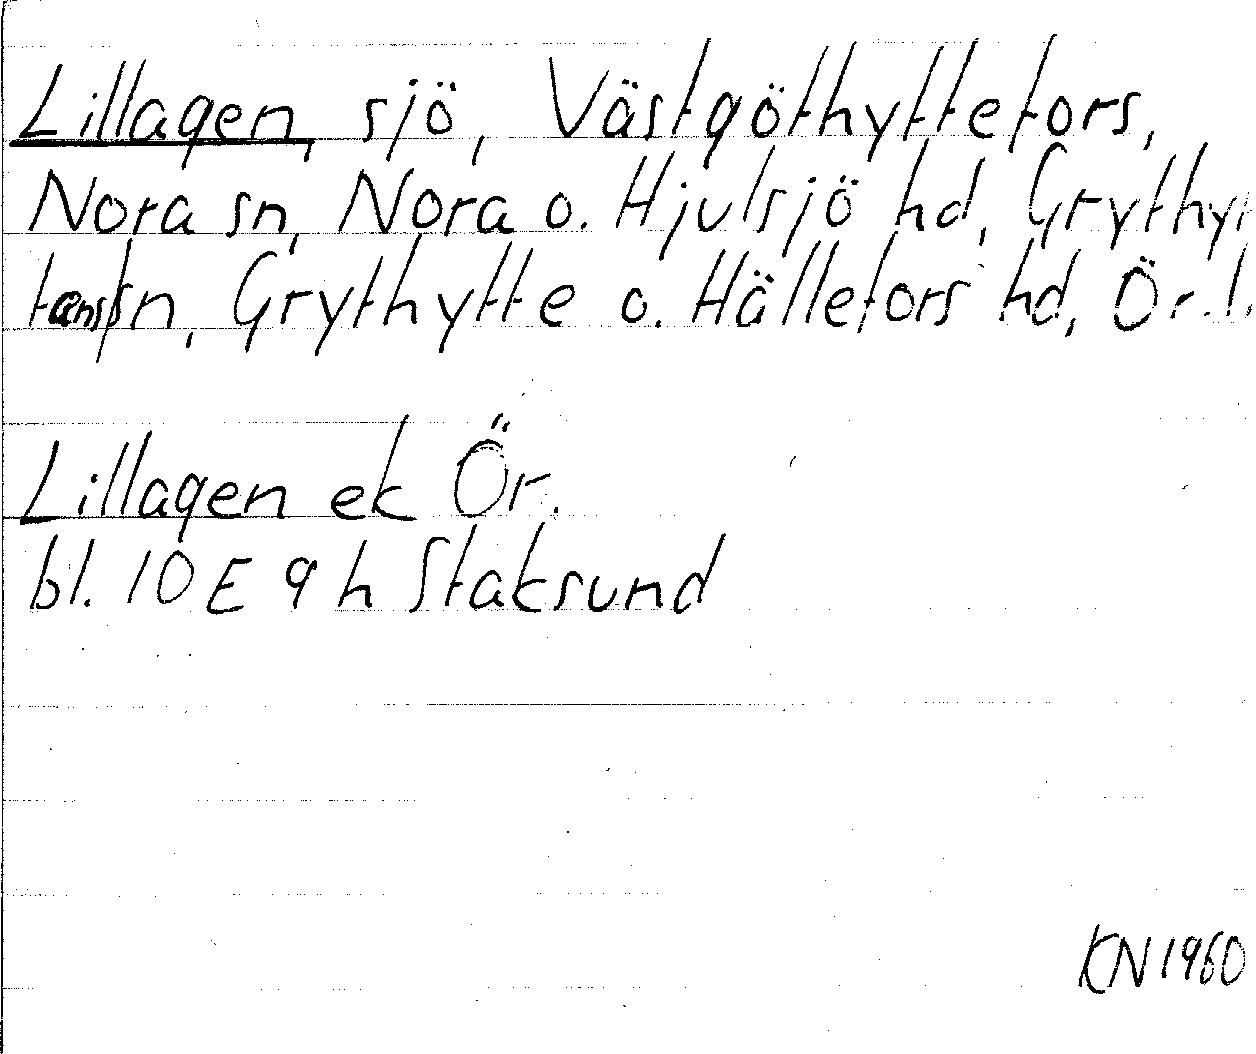 Lillagen, sjö, Västgöthyttefors,
Nora sn, Nora o. Hjulsjö hd, Grythyt
tans sn, Grythytte o. Hällefors hd, Ör. l.
Lillagen ek Ör.
bl. 10 E 9 h Staksund
KN 1960